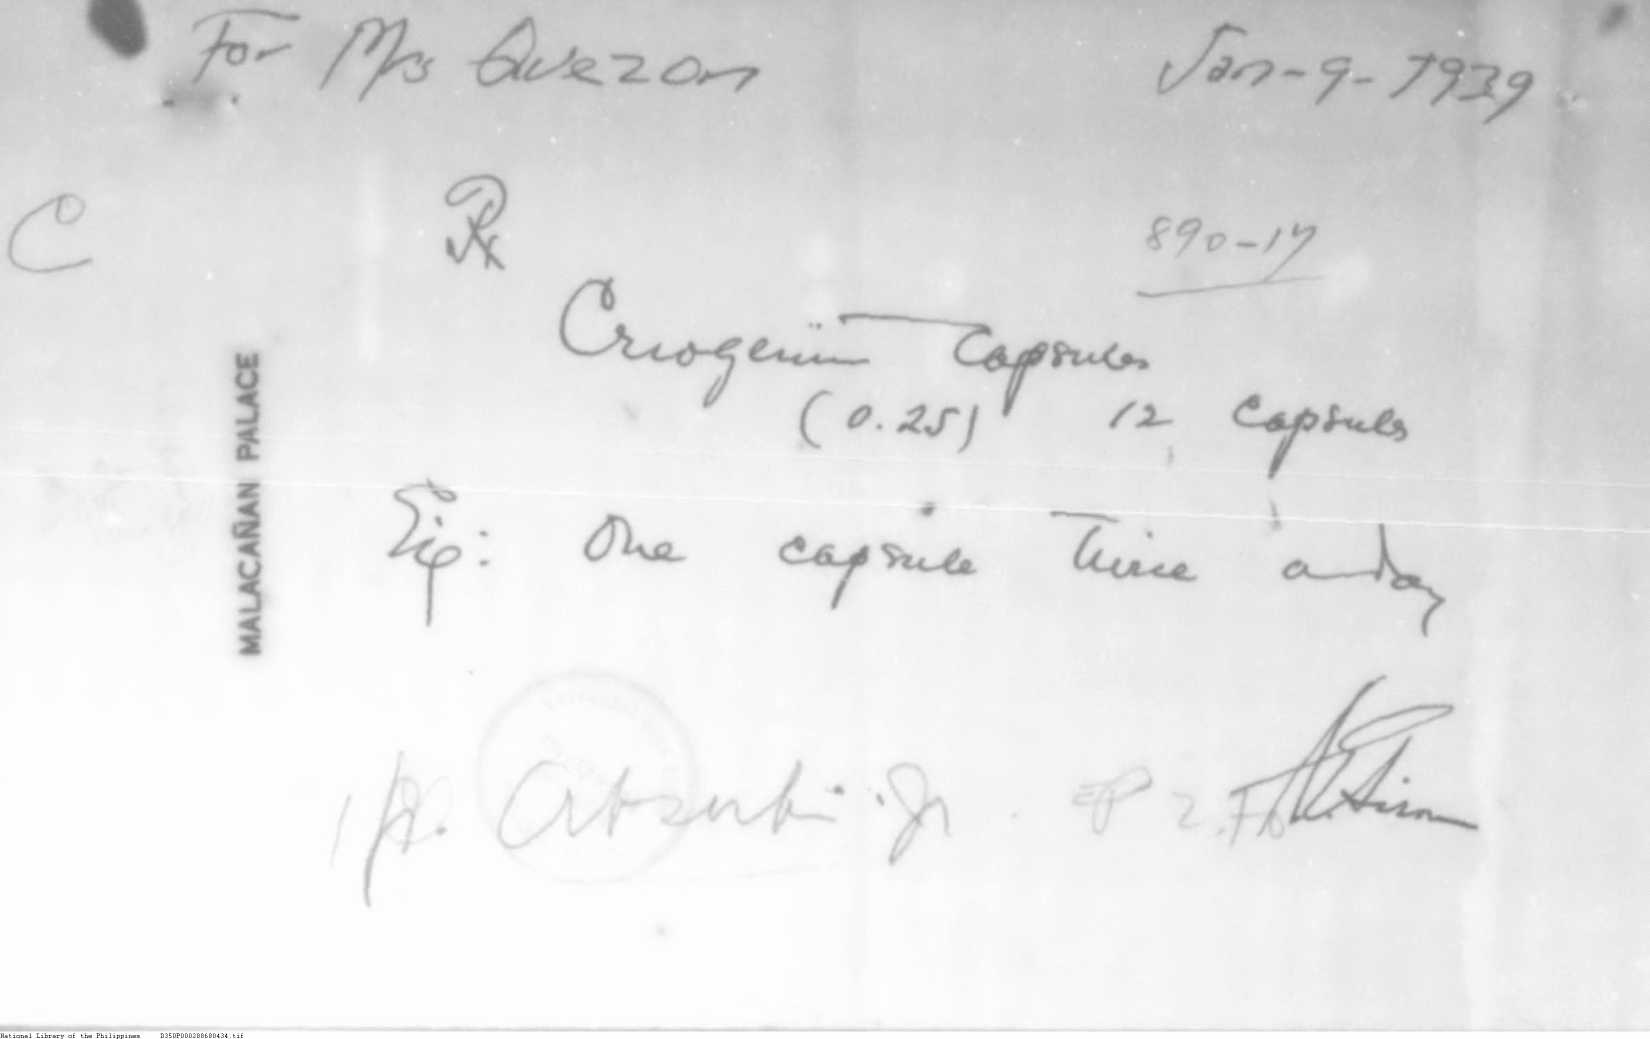 For Mrs Quezon Jan-9-1939
C Rx 890-17
Criogenin Capsules
(0.25) 12 capsules
MALACAÑAN PALACE
Sig: One capsule twice a day
Jr.
National Library of the Philippines D350P000288600434.tif